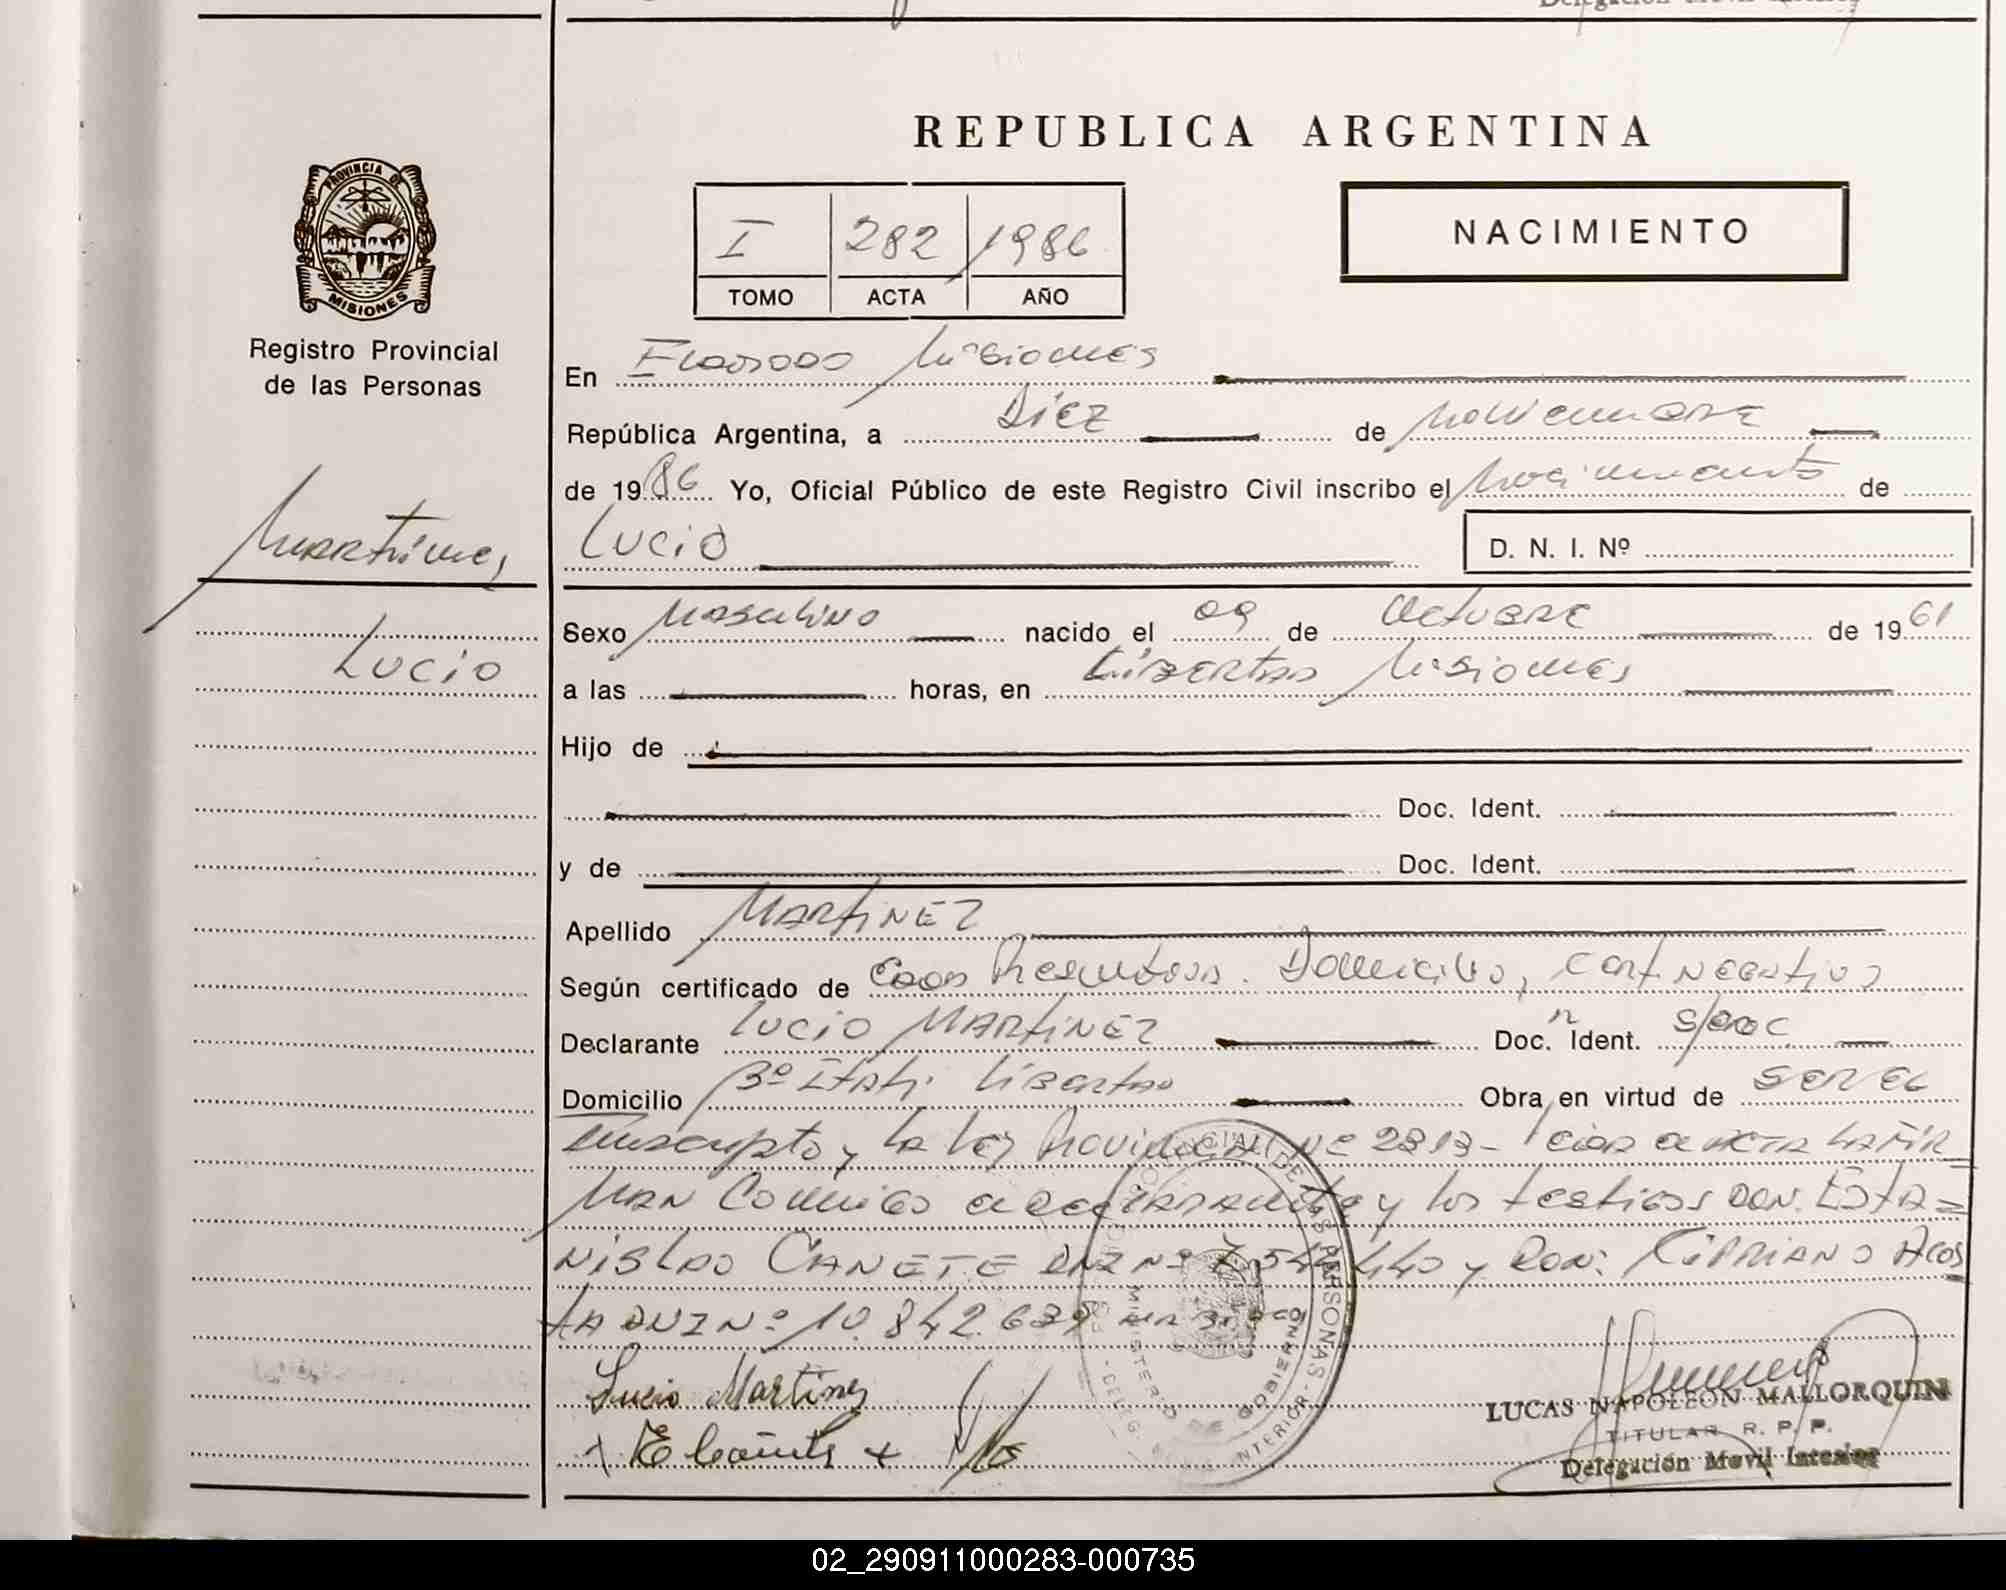 REPUBLICA ARGENTINA
PROVINCIA DE
MISIONES
Registro Provincial
de las Personas
I 282 1986
TOMO ACTA AÑO
NACIMIENTO
En Eldorado Misiones
República Argentina, a Diez de Noviembre
de 1986 Yo, Oficial Público de este Registro Civil inscribo el Nacimiento de
Lucio
D. N. I. Nº
Martinez
Lucio
Sexo Masculino nacido el 09 de Octubre de 1961
a las horas, en Libertad Misiones
Hijo de
Doc. Ident.
y de Doc. Ident.
Apellido MARTINEZ
Según certificado de Edad Presuntiva. Domicilio, Cert Negativo
Declarante Lucio MARTINEZ Doc. Ident. S/Doc
Domicilio Bº Itati Libertad Obra en virtud de SER EL
inscripto y la Ley Provincial Nº 2313- leida el ACTA LA FIR
MAN Conmigo el declarante y los testigos DON: ESTA=
NISLAO CAÑETE DNI Nº 7.544.440 y DON: CIPRIANO Acos
TA DNI Nº 10.842.639
Lucio Martinez
E Cañete
REGISTRO PROVINCIAL DE LAS PERSONAS
MINISTERIO DE GOBIERNO
-DELEG. MOVIL INTERIOR-
LUCAS NAPOLEON MALLORQUIN
TITULAR R. P. P.
Delegación Movil Interior
02_290911000283-000735